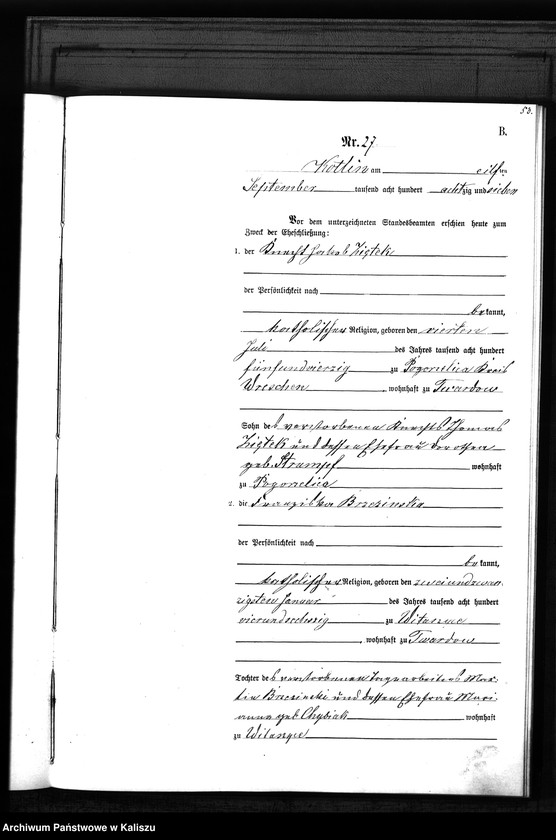 53.
B.
Nr. 27
Kotlin am eilften
September tausend acht hundert achtzig und sieben
Vor dem unterzeichneten Standesbeamten erschien heute zum
Zweck der Eheschließung:
1. der Knecht Jakob Ziętek
der Persönlichkeit nach
bekannt,
katholischer Religion, geboren den vierten
Juli des Jahres tausend acht hundert
fünfundvierzig zu Pogorzelica Kreis
Wreschen, wohnhaft zu Twardow
Sohn des verstorbenen Knechts Thomas
Ziętek und dessen Ehefrau Dorothea
geb. Strumpf wohnhaft
zu Pogorzelica
2. die Franziska Brzezinska
der Persönlichkeit nach
bekannt,
katholischer Religion, geboren den zweiundzwan
zigsten Januar des Jahres tausend acht hundert
vierundsechszig zu Witaszyce
, wohnhaft zu Twardow
Tochter des verstorbenen Tagearbeiters Mar
tin Brzezinski und dessen Ehefrau Mari
anna geb. Chybiak wohnhaft
zu Witaszyce
Archiwum Państwowe w Kaliszu